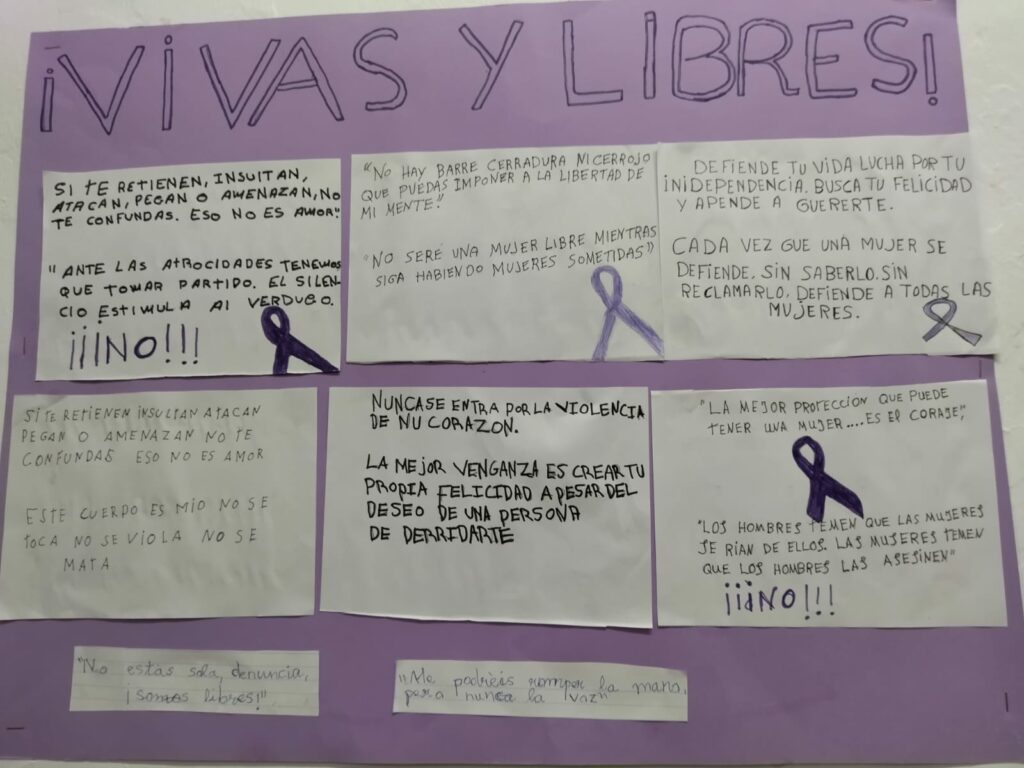 ¡VIVAS Y LIBRES!
SI TE RETIENEN, INSUITAN,
ATACAN, PEGAN O AMENAZAN, NO
TE CONFUNDAS. ESO NO ES AMOR."
"ANTE LAS ATROCIDADES TENEMOS
QUE TOMAR PARTIDO. EL SILEN-
CIO ESTIMULA AI VERDUGO.
¡¡¡NO!!!
"NO HAY BARRE CERRADURA NI CERROJO
QUE PUEDAS IMPONER A LA LIBERTAD DE
MI MENTE."
"NO SERÉ UNA MUJER LIBRE MIENTRAS
SIGA HABIENDO MUJERES SOMETIDAS"
DEFIENDE TU VIDA LUCHA POR TU
INIDEPENDENCIA. BUSCA TU FELICIDAD
Y APENDE A GUERERTE.
CADA VEZ GUE UNA MUJER SE
DEFIENDE. SIN SABERLO. SIN
RECLAMARLO, DEFIENDE A TODAS LAS
MUJERES.
SI TE RETIENEN INSULTAN ATACAN
PEGAN O AMENAZAN NO TE
CONFUNDAS ESO NO ES AMOR
ESTE CUERPO ES MIO NO SE
TOCA NO SE VIOLA NO SE
MATA
NUNCASE ENTRA POR LA VIOLENCIA
DE NU CORAZON.
LA MEJOR VENGANZA ES CREAR TU
PROPIA FELICIDAD A PESAR DEL
DESEO DE UNA PERSONA
DE DERRIDARTE
"LA MEJOR PROTECCION QUE PUEDE
TENER UNA MUJER....ES EL CORAJE",
"LOS HOMBRES TEMEN QUE LAS MUJERES
SE RIAN DE ELLOS. LAS MUJERES TEMEN
QUE LOS HOMBRES LAS ASESINEN"
¡¡¡NO!!!
"No estas sola, denuncia,
¡somos libres!"
"Me podréis romper la mano,
pero nunca la voz"